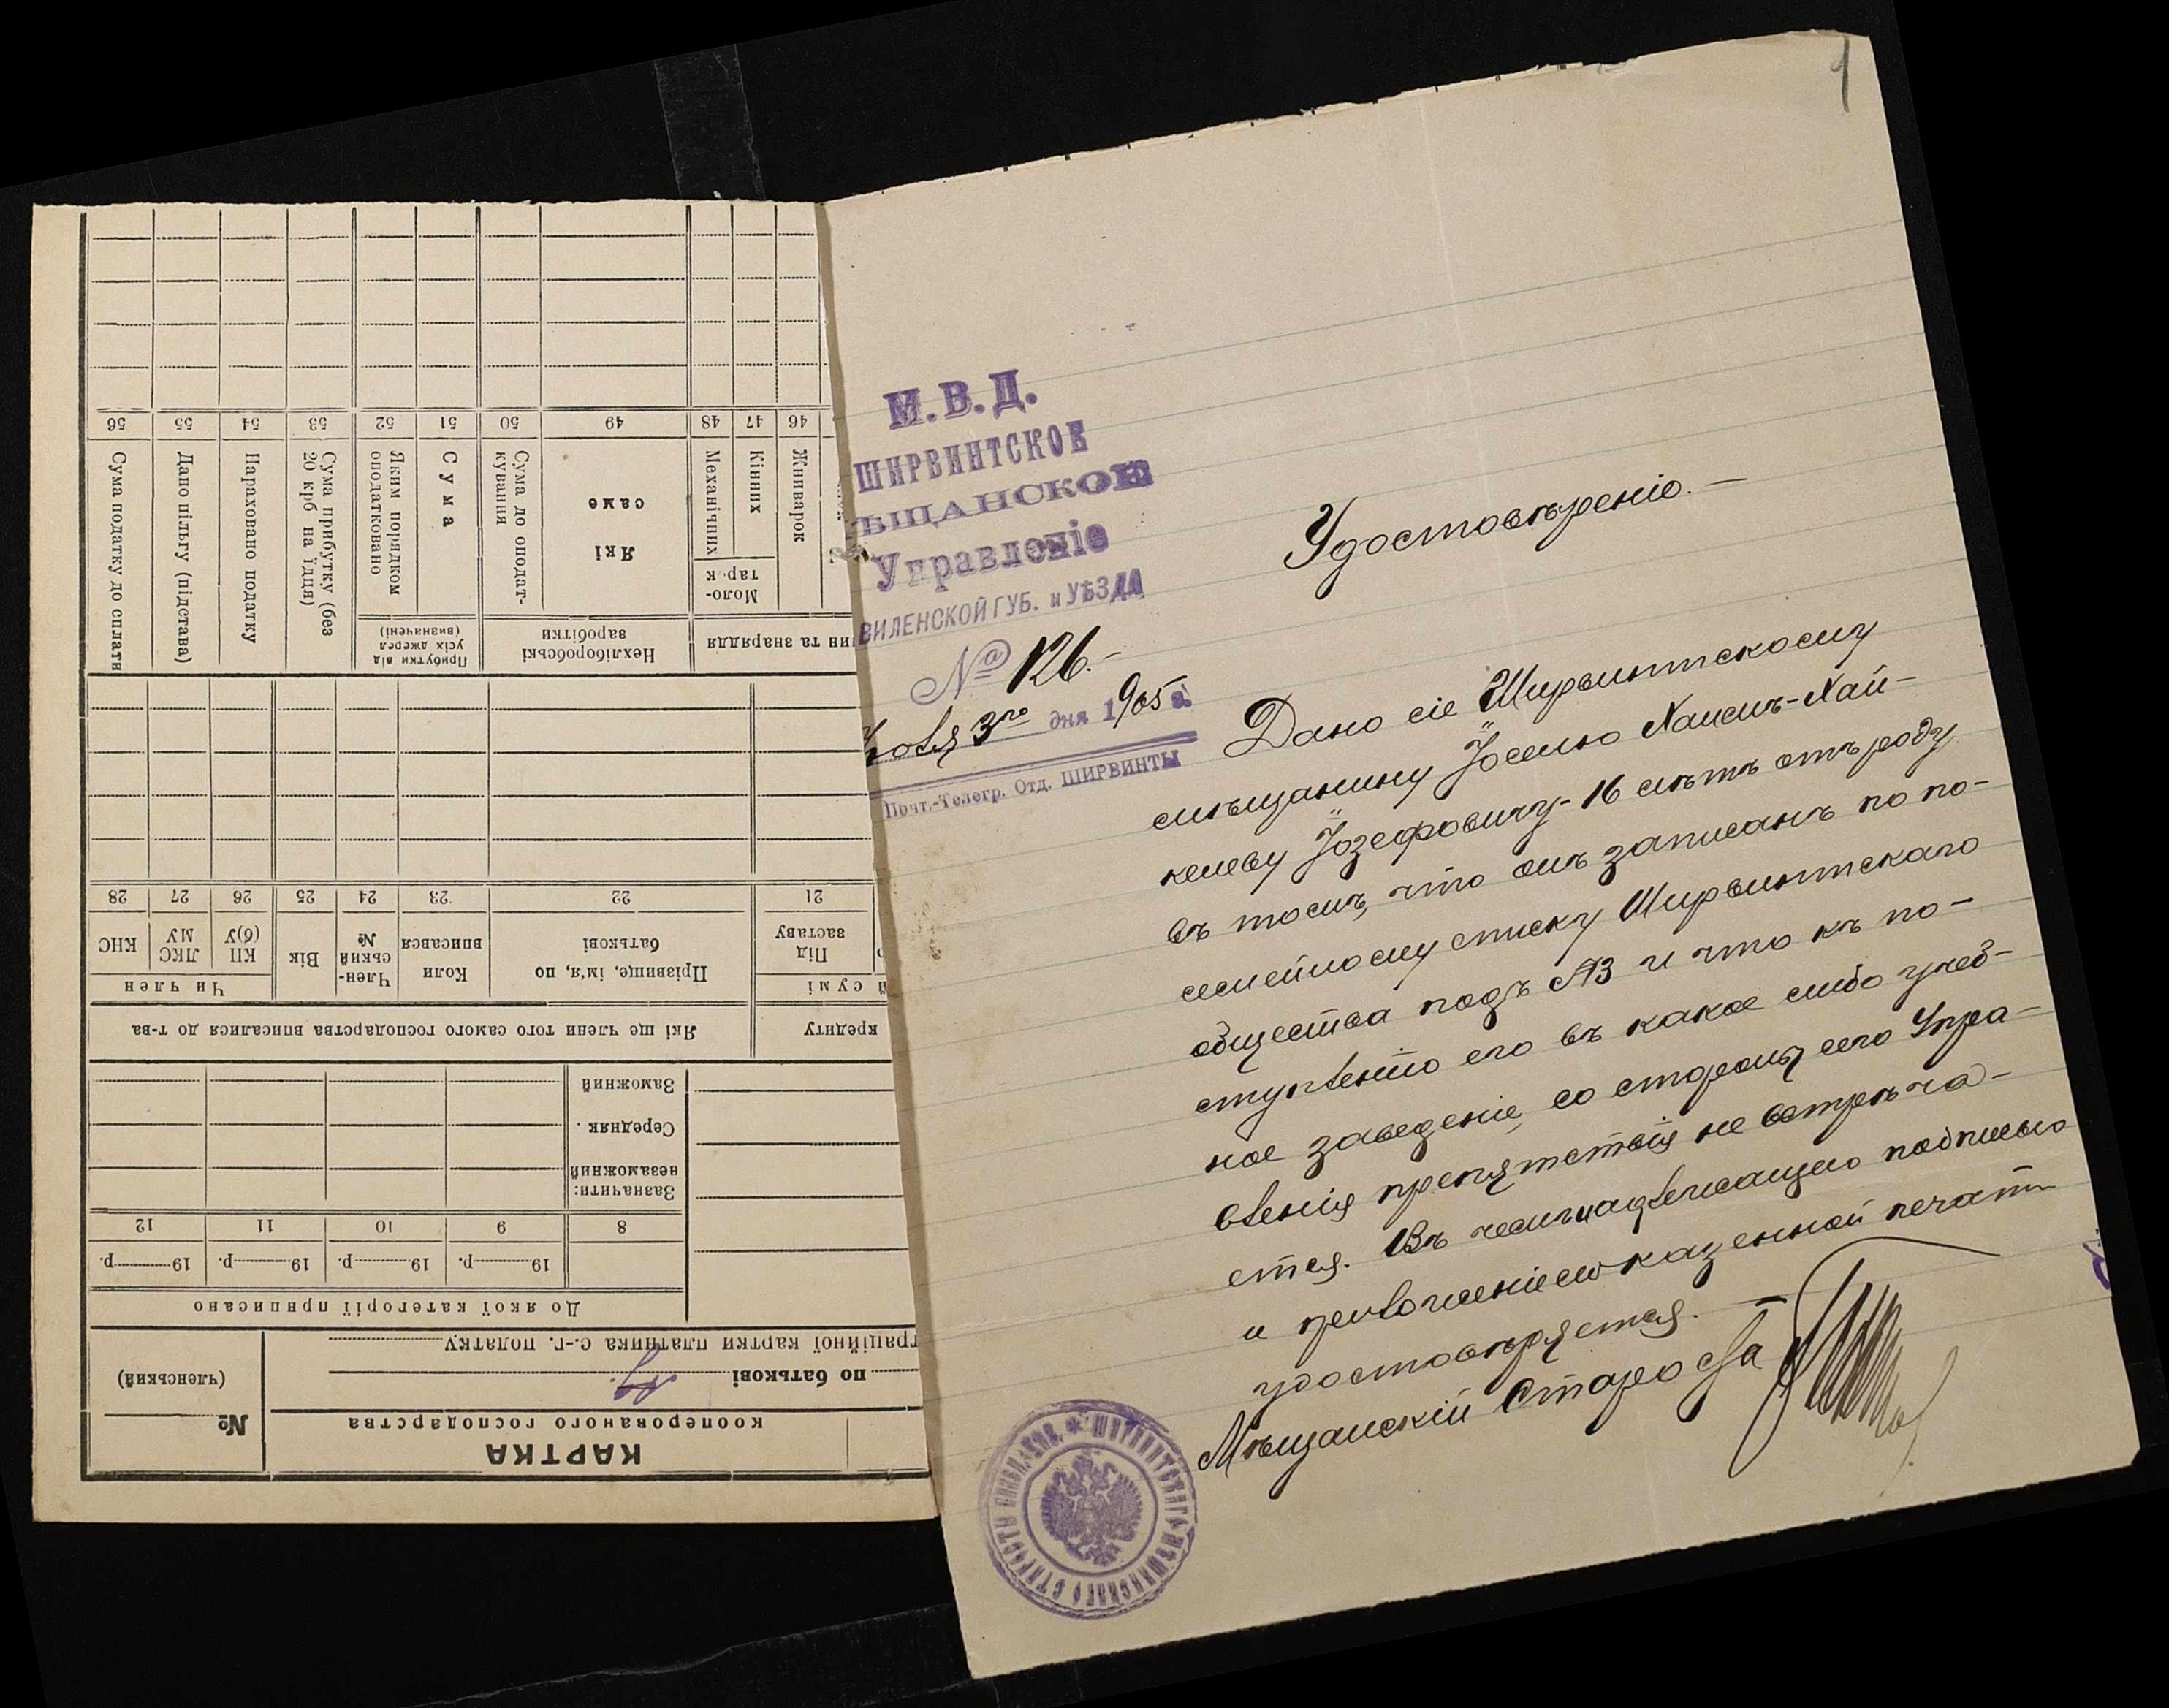 М.В.Д.
ШИРВИНТСКОЕ
ѢЩАНСКОЕ
Управленіе
ВИЛЕНСКОЙ ГУБ. и УѢЗДА
№ 126.-
3го дня 1905 г.
Почт.-Телегр. Отд. ШИРВИНТЫ
Удостовѣреніе. —
Дано сіе Ширвинтскому
мѣщанину Іоселю Хаимъ-Хай-
келеву Іозефовичу - 16 лѣтъ отъ роду
въ томъ, что онъ записанъ по по-
семейному списку Ширвинтскаго
общества подъ №3 и что къ по-
ступленію его въ какое либо учеб-
ное заведеніе, со стороны сего Упра-
вленія препятствія не встрѣча-
ется. Въ чемъ надлежащею подписью
и приложеніемъ казенной печати
удостовѣряется. —
Мѣщанскій Староста
КАРТКА
кооперованого господарства
№
(членський)
по батькові
граційної картки платника с.-г. податку
До якої категорії приписано
19 р. 19 р. 19 р. 19 р.
8 9 10 11 12
Зазначити:
незаможний
Середняк
Заможний
кредиту
Які ще члени того самого господарства вписалися до т-ва
й сумі
Під заставу
Прізвище, ім'я, по батькові
Коли вписався
Член-ський №
Вік
Чи член
КП(б)У
ЛКСМУ
КНС
21 22 23 24 25 26 27 28
ин та знаряддя
Нехліборобські заробітки
Прибутки від усіх джерел (визначені)
Жниварок
Моло-тарок
Кінних
Механічних
Які саме
Сума до оподат-кування
Сума
Яким порядком оподатковано
Сума прибутку (без 20 крб на їдця)
Нараховано податку
Дано пільгу (підстава)
Сума податку до сплати
46 47 48 49 50 51 52 53 54 55 56